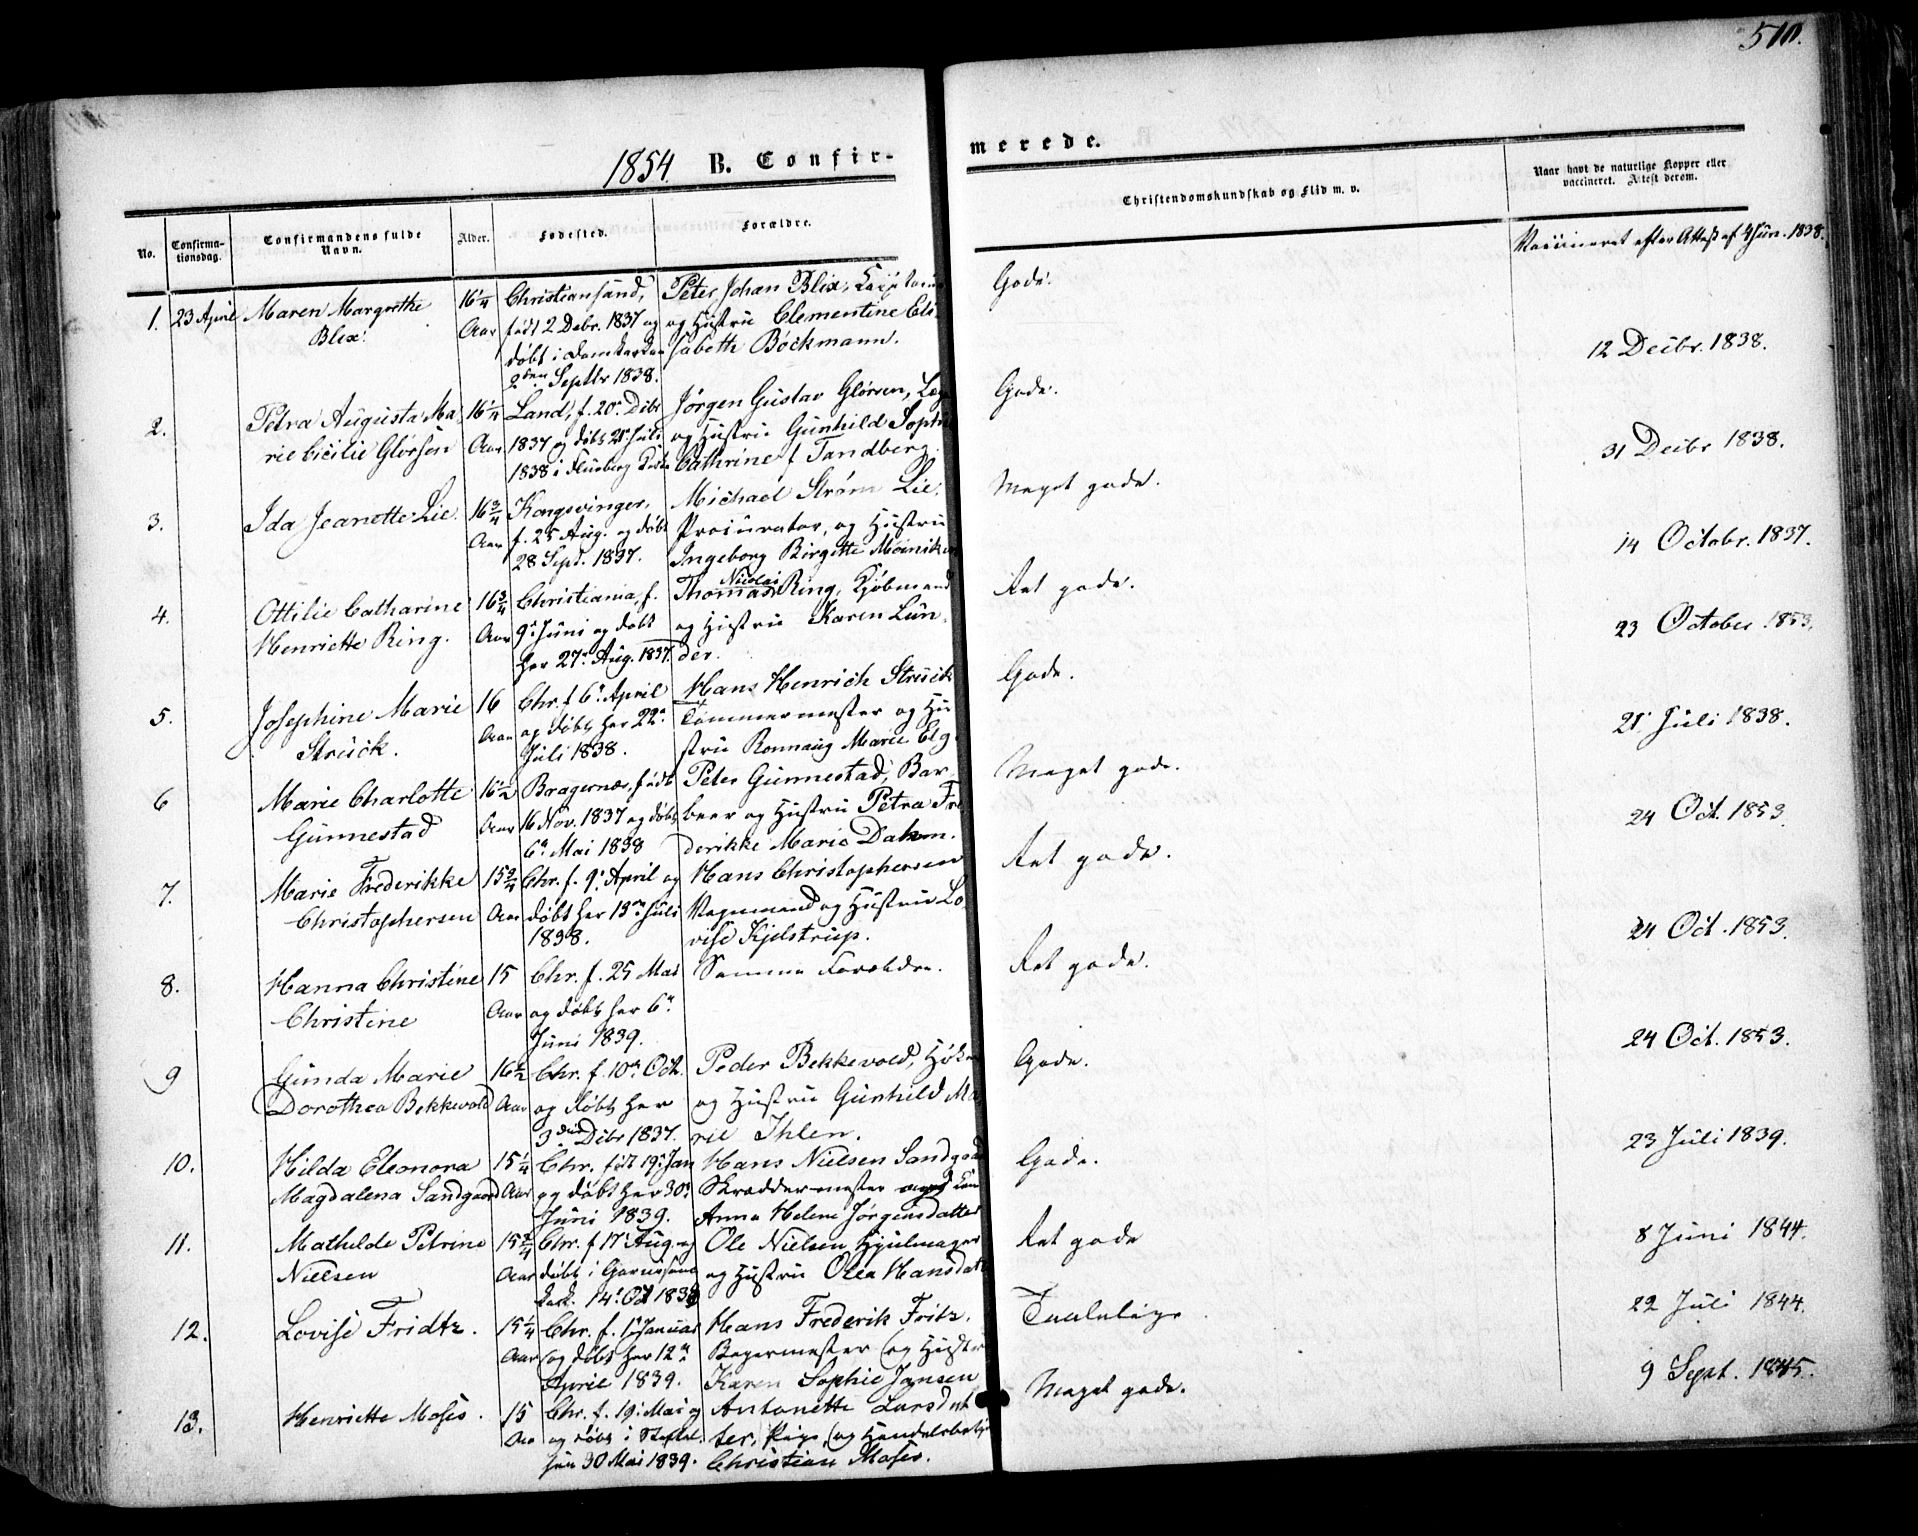 510.
1854. B. Confir-
merede.
No.
Confirma-
tionsdag.
Confirmandens fulde
Navn.
Alder.
Fødested.
Forældre.
Christendomskundskab og Flid m. v.
Naar havt de naturlige Kopper eller
vaccineret. Attest derom.
1. 23 April Maren Margrethe
Blix.
16 1/4
Aar
Christiansand,
født 2 Debr. 1837 og
døbt i Domkirken
2den Septbr 1838.
Peter Johan Blix,
og Hustru Clementine Eli-
sabeth Bøckmann.
Gode.
Vaccineret efter Attest af 4 Jun. 1838.
2.
Petra Augusta Ma-
rie Cicilie Glørsen
16 1/4
Aar
Land, f. 20 Dcbr
1837 og døbt 21 Juli
1838 i
Jørgen Gustav Glørsen,
og Hustru Gunhild Sophie
Cathrine f Tandberg.
Gode.
12 Decbr. 1838.
3.
Ida Jeanette Lie.
16 3/4
Aar
Kongsvinger,
f. 25 Aug. og døbt
28 Sept. 1837.
Michael Strøm Lie,
Procurator, og Hustru
Ingeborg Birgitte
Meget gode.
31 Decbr 1838.
4.
Ottilie Catharine
Henriette Ring.
16 3/4
Aar
Christiania, f.
9 Juni og døbt
her 27 Aug. 1837.
Thomas Nicolai Ring, Kjøbmand
og Hustru Karen Lun-
der.
Ret gode.
14 Octobr. 1837.
5.
Josephine Marie
Strück.
16
Aar
Chr. f 6 April
og døbt her 22
Juli 1838.
Hans Henrich Strück
Tømmermester og Hu-
stru Ronnaug Marie Elg.
Gode.
23 October 1853.
6
Marie Charlotte
Gunnestad
16 1/2
Aar
Bragernæs, født
16 Nov. 1837 og døbt
6 Mai 1838
Peter Gunnestad, Bar-
beer og Hustru Petra Fre-
derikke Marie
Meget gode.
21 Juli 1838.
7.
Marie Frederikke
Christophersen
15 3/4
Aar
Chr. f. 9 April og
døbt her 13 Juli
1838.
Hans Christophersen
Vognmand og Hustru Lo-
vise Kjelstrup.
Ret gode.
24 Oct. 1853.
8.
Hanna Christine
Christine
15
Aar
Chr. f. 25 Mai
og døbt her 6
Juni 1839.
Samme Forældre.
Ret gode.
24 Oct. 1853.
9
Gunda Marie
Dorothea Bekkevold
16 1/2
Aar
Chr. f. 10 Oct.
og døbt her
3die Dcbr 1837.
Peder Bekkevold,
og Hustru Gunhild Ma-
rie Ihlen.
Gode.
24 Oct. 1853.
10.
Hilda Eleonora
Magdalena Sandgaard
15 1/4
Aar
Chr. født 19 Jan
og døbt her 30
Juni 1839.
Hans Nielsen Sandgaard
Skræddermester
Anna Helene Jørgensdatter
Gode.
23 Juli 1839.
11.
Mathilde Petrine
Nielsen
15 3/4
Aar
Chr. f 17 Aug. og
døbt i Garnisons
kirk. 14 Oct 1838
Ole Nielsen Hjulmager
og Hustru Olea Hansdatt
Ret gode
8 Juni 1844.
12.
Lovise Fridtz.
15 1/4
Aar
Chr. f. 1 Januar
og døbt her 12
April 1839.
Hans Frederik Fritz.
Bagermester og Hustru
Karen Sophie Jansen
Taalelige
22 Juli 1844.
13.
Henriette Moses.
15
Aar
Chr. f. 19 Mai og
og døbt i
30 Mai 1839.
Antonette Larsdat-
ter, Pige, og
Christian Moses.
Meget gode.
9 Sept. 1845.